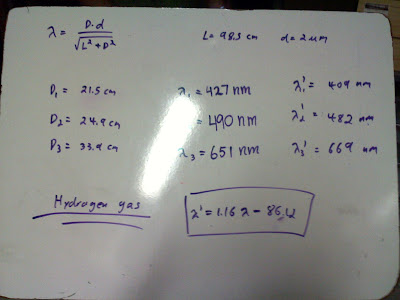 λ = D·d / √(L² + D²) L = 98.5 cm d = 2 μm
D₁ = 21.5 cm λ₁ = 427 nm λ₁' = 409 nm
D₂ = 24.9 cm = 490 nm λ₂' = 482 nm
D₃ = 33.9 cm λ₃ = 651 nm λ₃' = 669 nm
Hydrogen gas λ' = 1.16 λ - 86.12